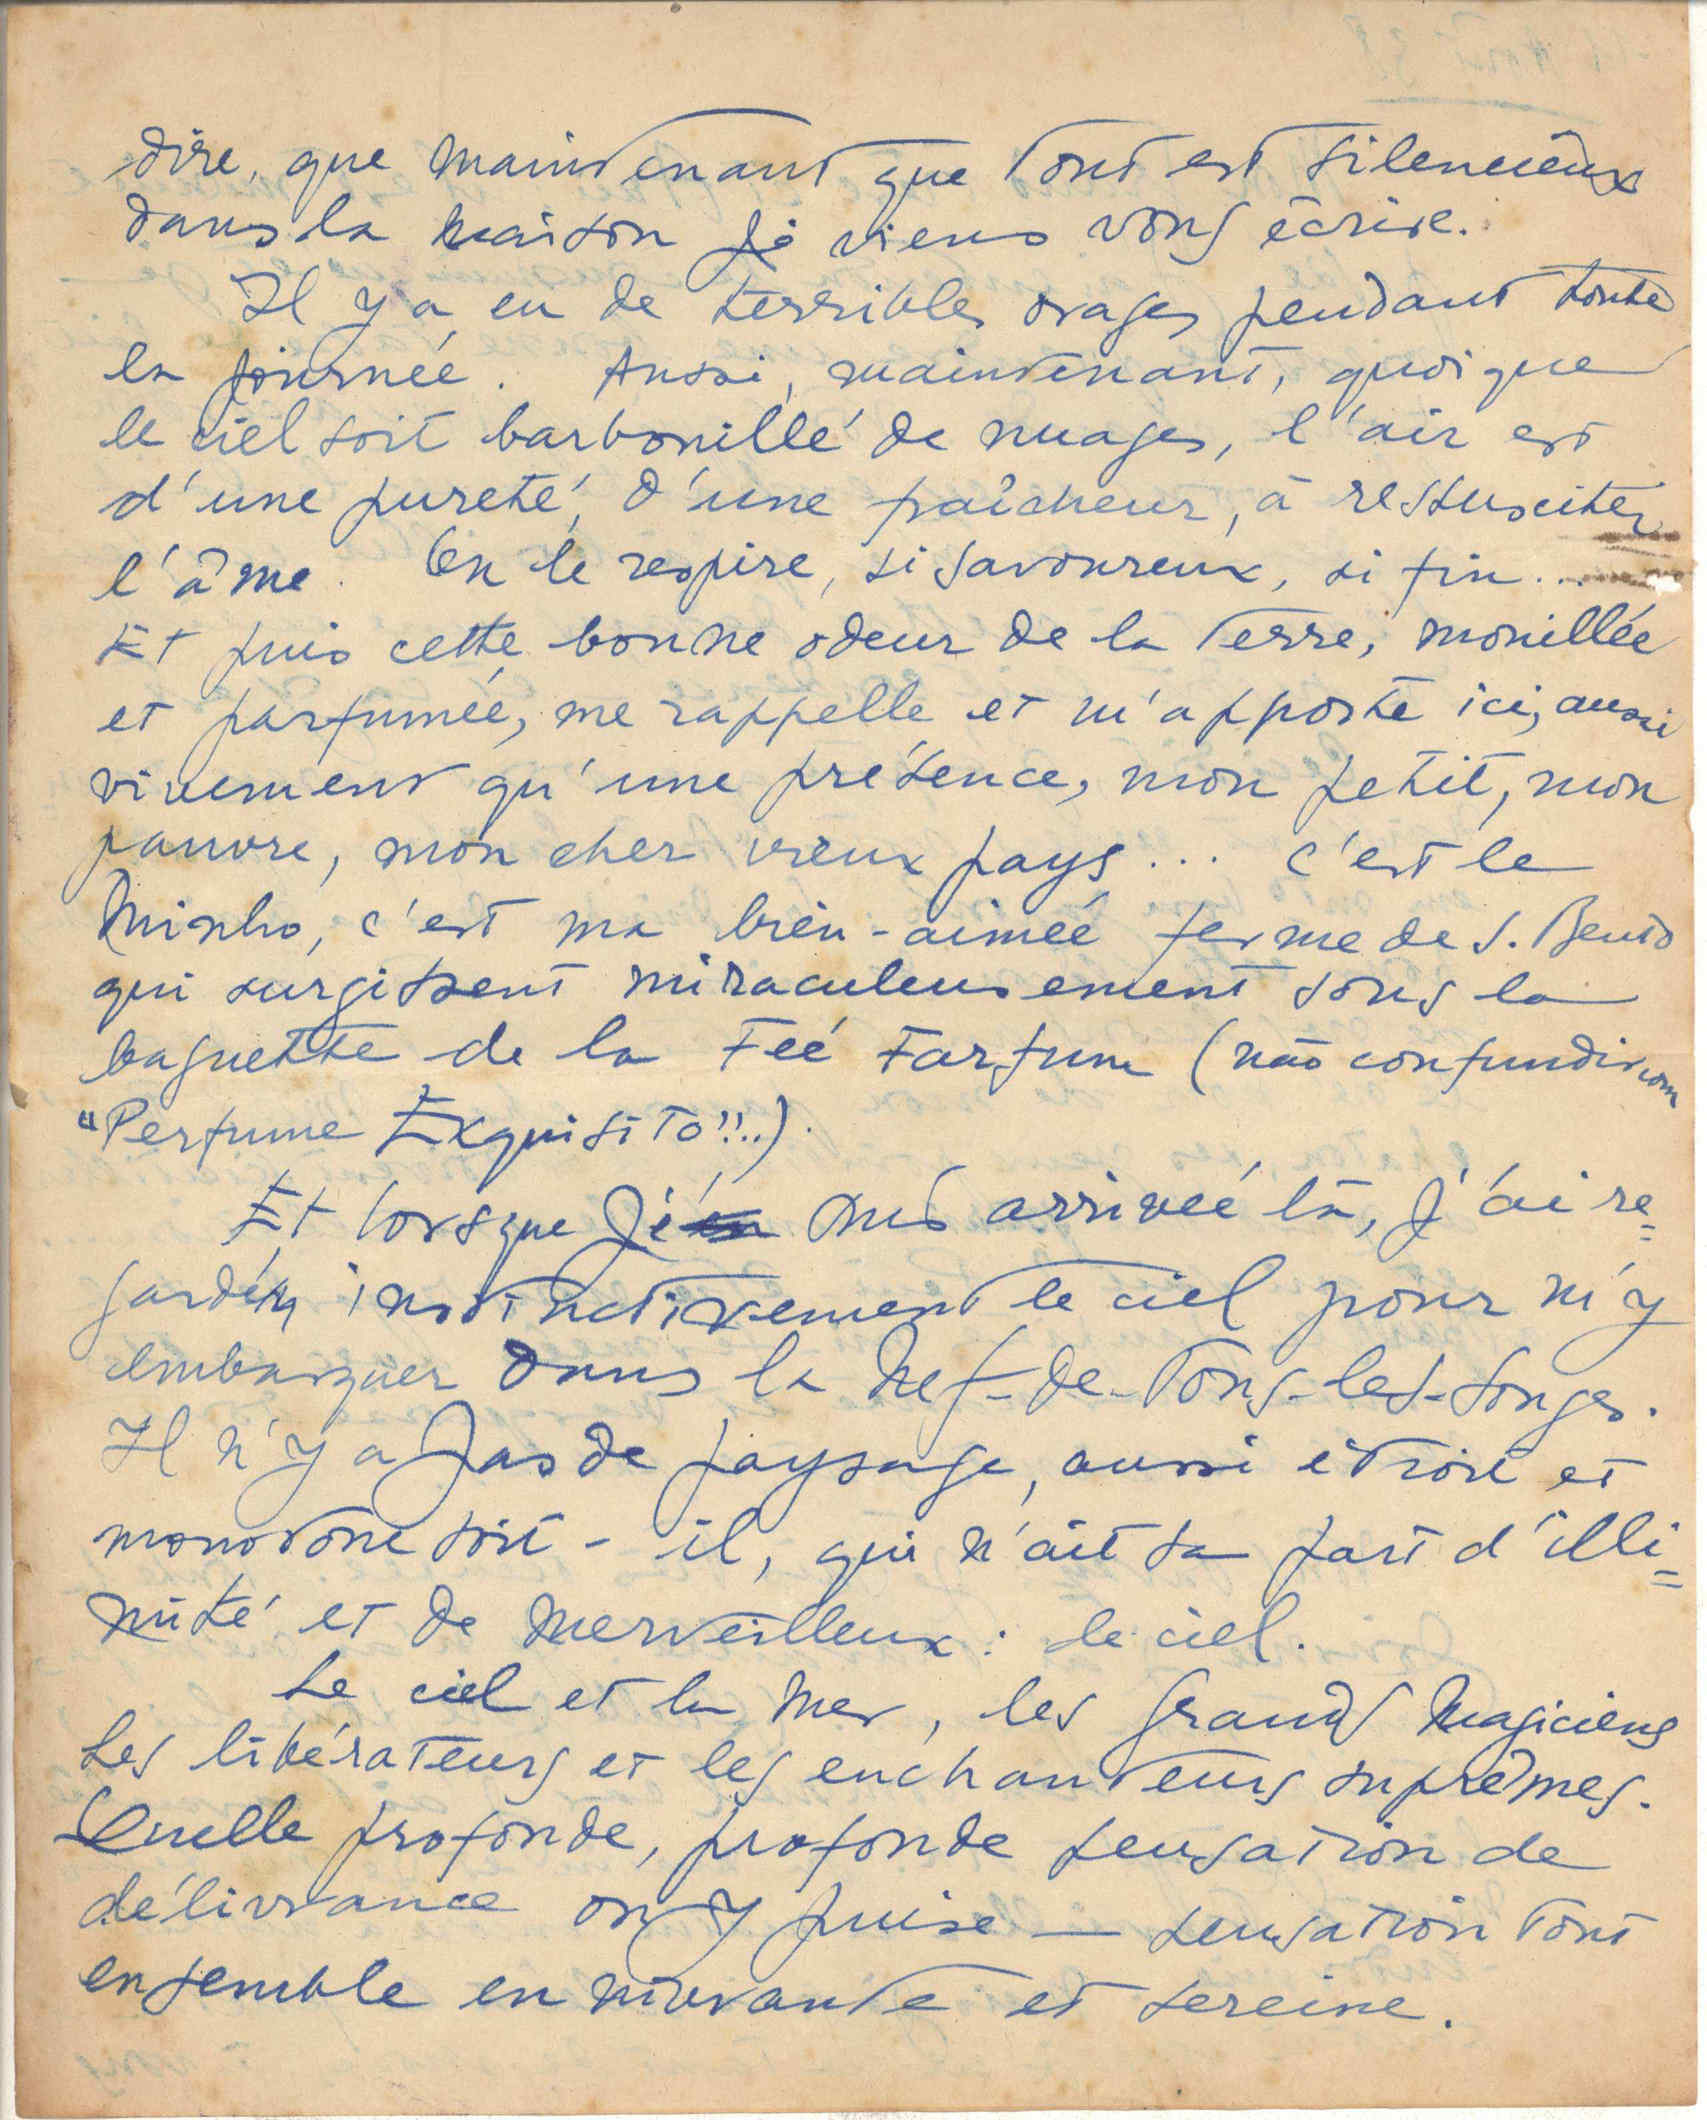 dire, que maintenant que tout est silencieux
dans la maison je viens vous écrire.
Il y a eu de terribles orages pendant toute
la journée. Aussi, maintenant, quoique
le ciel soit barbouillé de nuages, l'air est
d'une pureté, d'une fraîcheur, à ressusciter
l'âme. On le respire, si savoureux, si fin...
Et puis cette bonne odeur de la terre, mouillée
et parfumée, me rappelle et m'apporte ici, aussi
vivement qu'une présence, mon petit, mon
pauvre, mon cher vieux pays... C'est le
Minho, c'est ma bien-aimée ferme de S. Bento
qui surgissent miraculeusement sous la
baguette de la Fée Parfum (não confundir com
"Perfume Exquisito"!!..).
Et lorsque je suis arrivée là, j'ai re=
gardé instinctivement le ciel pour m'y
embarquer dans la Nef-de-Tous-les-Songes.
Il n'y a pas de paysage, aussi étroit et
monotone soit-il, qui n'ait sa part d'illi=
mité et de merveilleux: le ciel.
Le ciel et la Mer, les grands Magiciens
Les libérateurs et les enchanteurs suprêmes.
Quelle profonde, profonde sensation de
délivrance on y puise — sensation tout
ensemble ennivrante et sereine.